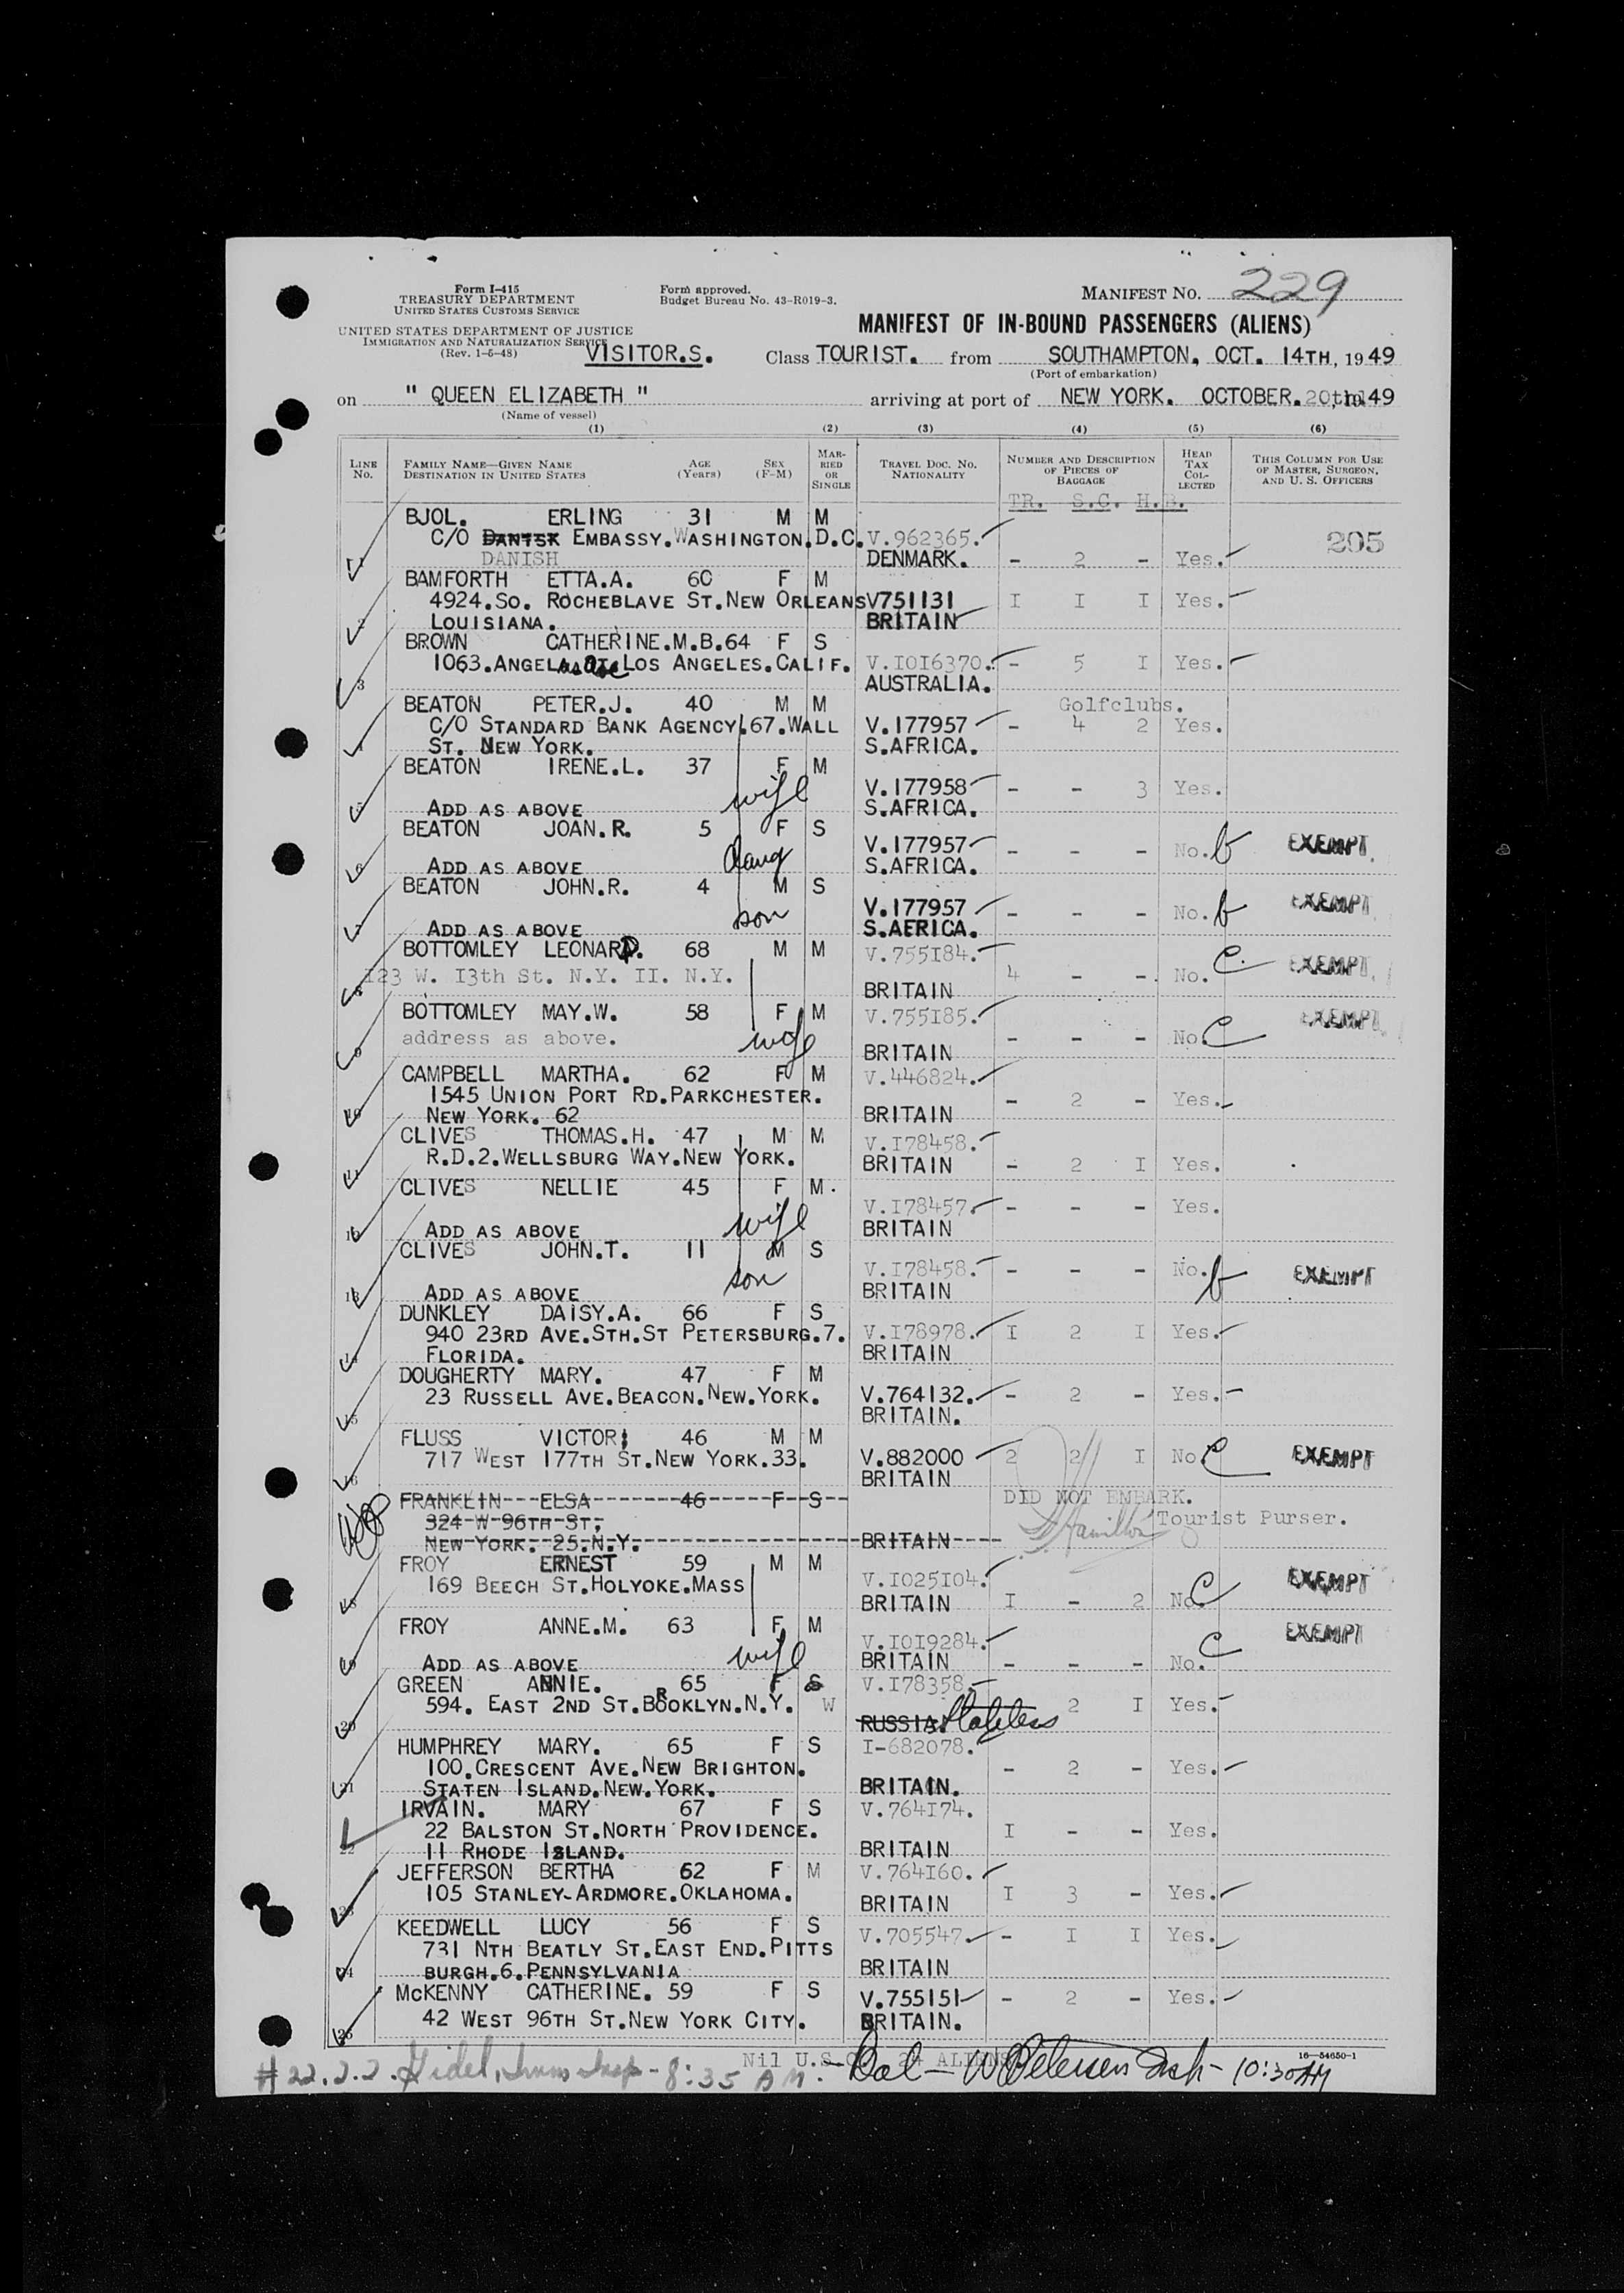 Form I-415
TREASURY DEPARTMENT
UNITED STATES CUSTOMS SERVICE
UNITED STATES DEPARTMENT OF JUSTICE
IMMIGRATION AND NATURALIZATION SERVICE
(Rev. 1-5-48)
Form approved.
Budget Bureau No. 43-R019-3.
MANIFEST NO. 229
MANIFEST OF IN-BOUND PASSENGERS (ALIENS)
VISITOR.S. Class TOURIST. from SOUTHAMPTON, OCT. 14TH, 1949
(Port of embarkation)
on " QUEEN ELIZABETH " arriving at port of NEW YORK. OCTOBER. 20th 49
(Name of vessel)
(1) (2) (3) (4) (5) (6)
LINE NO. FAMILY NAME—GIVEN NAME DESTINATION IN UNITED STATES AGE (Years) SEX (F-M) MARRIED OR SINGLE TRAVEL DOC. NO. NATIONALITY NUMBER AND DESCRIPTION OF PIECES OF BAGGAGE HEAD TAX COLLECTED THIS COLUMN FOR USE OF MASTER, SURGEON, AND U. S. OFFICERS
TR. S.C. H.B.
BJOL. ERLING 31 M M
C/O DANTSK EMBASSY.WASHINGTON.D.C. V.962365. 205
1 DANISH DENMARK. - 2 - Yes.
BAMFORTH ETTA.A. 60 F M
4924.SO. ROCHEBLAVE ST.NEW ORLEANS V751131 I I I Yes.
2 LOUISIANA. BRITAIN
BROWN CATHERINE.M.B. 64 F S
1063.ANGELA LOS ANGELES.CALIF. V.I0I6370. - 5 I Yes.
3 AUSTRALIA.
BEATON PETER.J. 40 M M Golfclubs.
C/O STANDARD BANK AGENCY.67.WALL V.177957 - 4 2 Yes.
4 ST. NEW YORK. S.AFRICA.
BEATON IRENE.L. 37 F M
wife V.177958 - - 3 Yes.
5 ADD AS ABOVE S.AFRICA.
BEATON JOAN.R. 5 F S
Daug V.177957 - - - No. b EXEMPT.
6 ADD AS ABOVE S.AFRICA.
BEATON JOHN.R. 4 M S
son V.177957 - - - No. b EXEMPT
7 ADD AS ABOVE S.AFRICA.
BOTTOMLEY LEONARD. 68 M M V.755I84.
8 I23 W. I3th St. N.Y. II. N.Y. BRITAIN 4 - - No. C EXEMPT.
BOTTOMLEY MAY.W. 58 F M V.755I85.
9 address as above. wife BRITAIN - - - No. C EXEMPT
CAMPBELL MARTHA. 62 F M V.446824.
1545 UNION PORT RD.PARKCHESTER. - 2 - Yes.
10 NEW YORK. 62 BRITAIN
CLIVES THOMAS.H. 47 M M V.I78458.
11 R.D.2.WELLSBURG WAY.NEW YORK. BRITAIN - 2 I Yes.
CLIVES NELLIE 45 F M.
wife V.I78457. - - - Yes.
12 ADD AS ABOVE BRITAIN
CLIVES JOHN.T. 11 M S
son V.I78458. - - - No. b EXEMPT
13 ADD AS ABOVE BRITAIN
DUNKLEY DAISY.A. 66 F S
940 23RD AVE.STH.ST PETERSBURG.7. V.I78978. I 2 I Yes.
14 FLORIDA. BRITAIN
DOUGHERTY MARY. 47 F M
23 RUSSELL AVE.BEACON.NEW.YORK. V.764132. - 2 - Yes.
15 BRITAIN.
FLUSS VICTOR; 46 M M
717 WEST 177TH ST.NEW YORK.33. V.882000 2 2 I No C EXEMPT
16 BRITAIN
FRANKLIN---ELSA---46---F--S-- DID NOT EMBARK.
324-W-96TH-ST, Hamilton Tourist Purser.
NEW-YORK.-25.-N.Y. BRITAIN
FROY ERNEST 59 M M V.I025I04. EXEMPT
18 169 BEECH ST.HOLYOKE.MASS BRITAIN I - 2 No. C
FROY ANNE.M. 63 F M V.I0I9284. EXEMPT
19 ADD AS ABOVE wife BRITAIN - - - No. C
GREEN ANNIE. 65 F S V.I78358.
594. EAST 2ND ST.BROOKLYN.N.Y. W 2 I Yes.
20 RUSSIA. Stateless
HUMPHREY MARY. 65 F S I-682078.
100.CRESCENT AVE.NEW BRIGHTON. - 2 - Yes.
21 STATEN ISLAND.NEW.YORK. BRITAIN.
IRVAIN. MARY 67 F S V.764I74.
22 BALSTON ST.NORTH PROVIDENCE. I - - Yes.
22 11 RHODE ISLAND. BRITAIN
JEFFERSON BERTHA 62 F M V.764I60.
23 105 STANLEY-ARDMORE.OKLAHOMA. BRITAIN I 3 - Yes.
KEEDWELL LUCY 56 F S V.705547. - I I Yes.
731 NTH BEATLY ST.EAST END.PITTS
24 BURGH.6.PENNSYLVANIA BRITAIN
McKENNY CATHERINE. 59 F S V.755151 - 2 - Yes.
25 42 WEST 96TH ST.NEW YORK CITY. BRITAIN.
Nil U.S.C. 24 ALIENS 16—54650-1
# 22.2.2. Gidel, Imm Insp - 8:35 AM. - Bal - W Petersen Insp - 10:30 AM